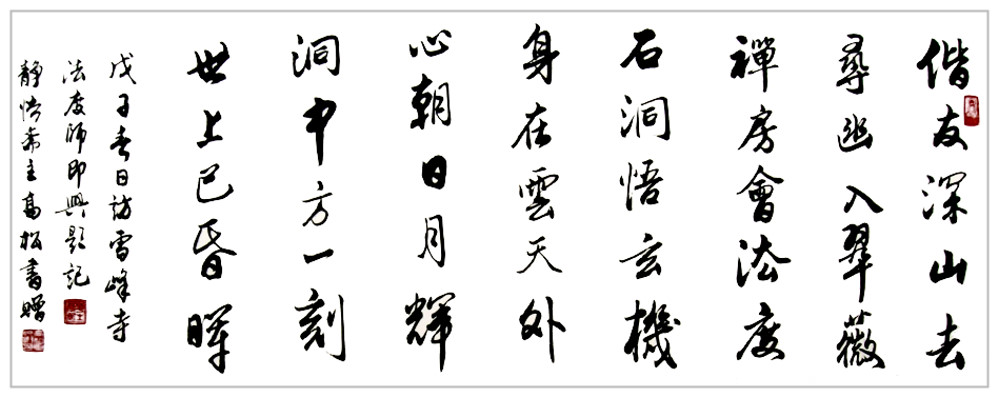 偕友深山去
尋幽入翠薇
禪房會法度
石洞悟玄機
身在雲天外
心朝日月輝
洞中方一刻
世上已昏暉
戊子春日訪雪峰寺
法度師即興題記
静悟斋主高松書贈